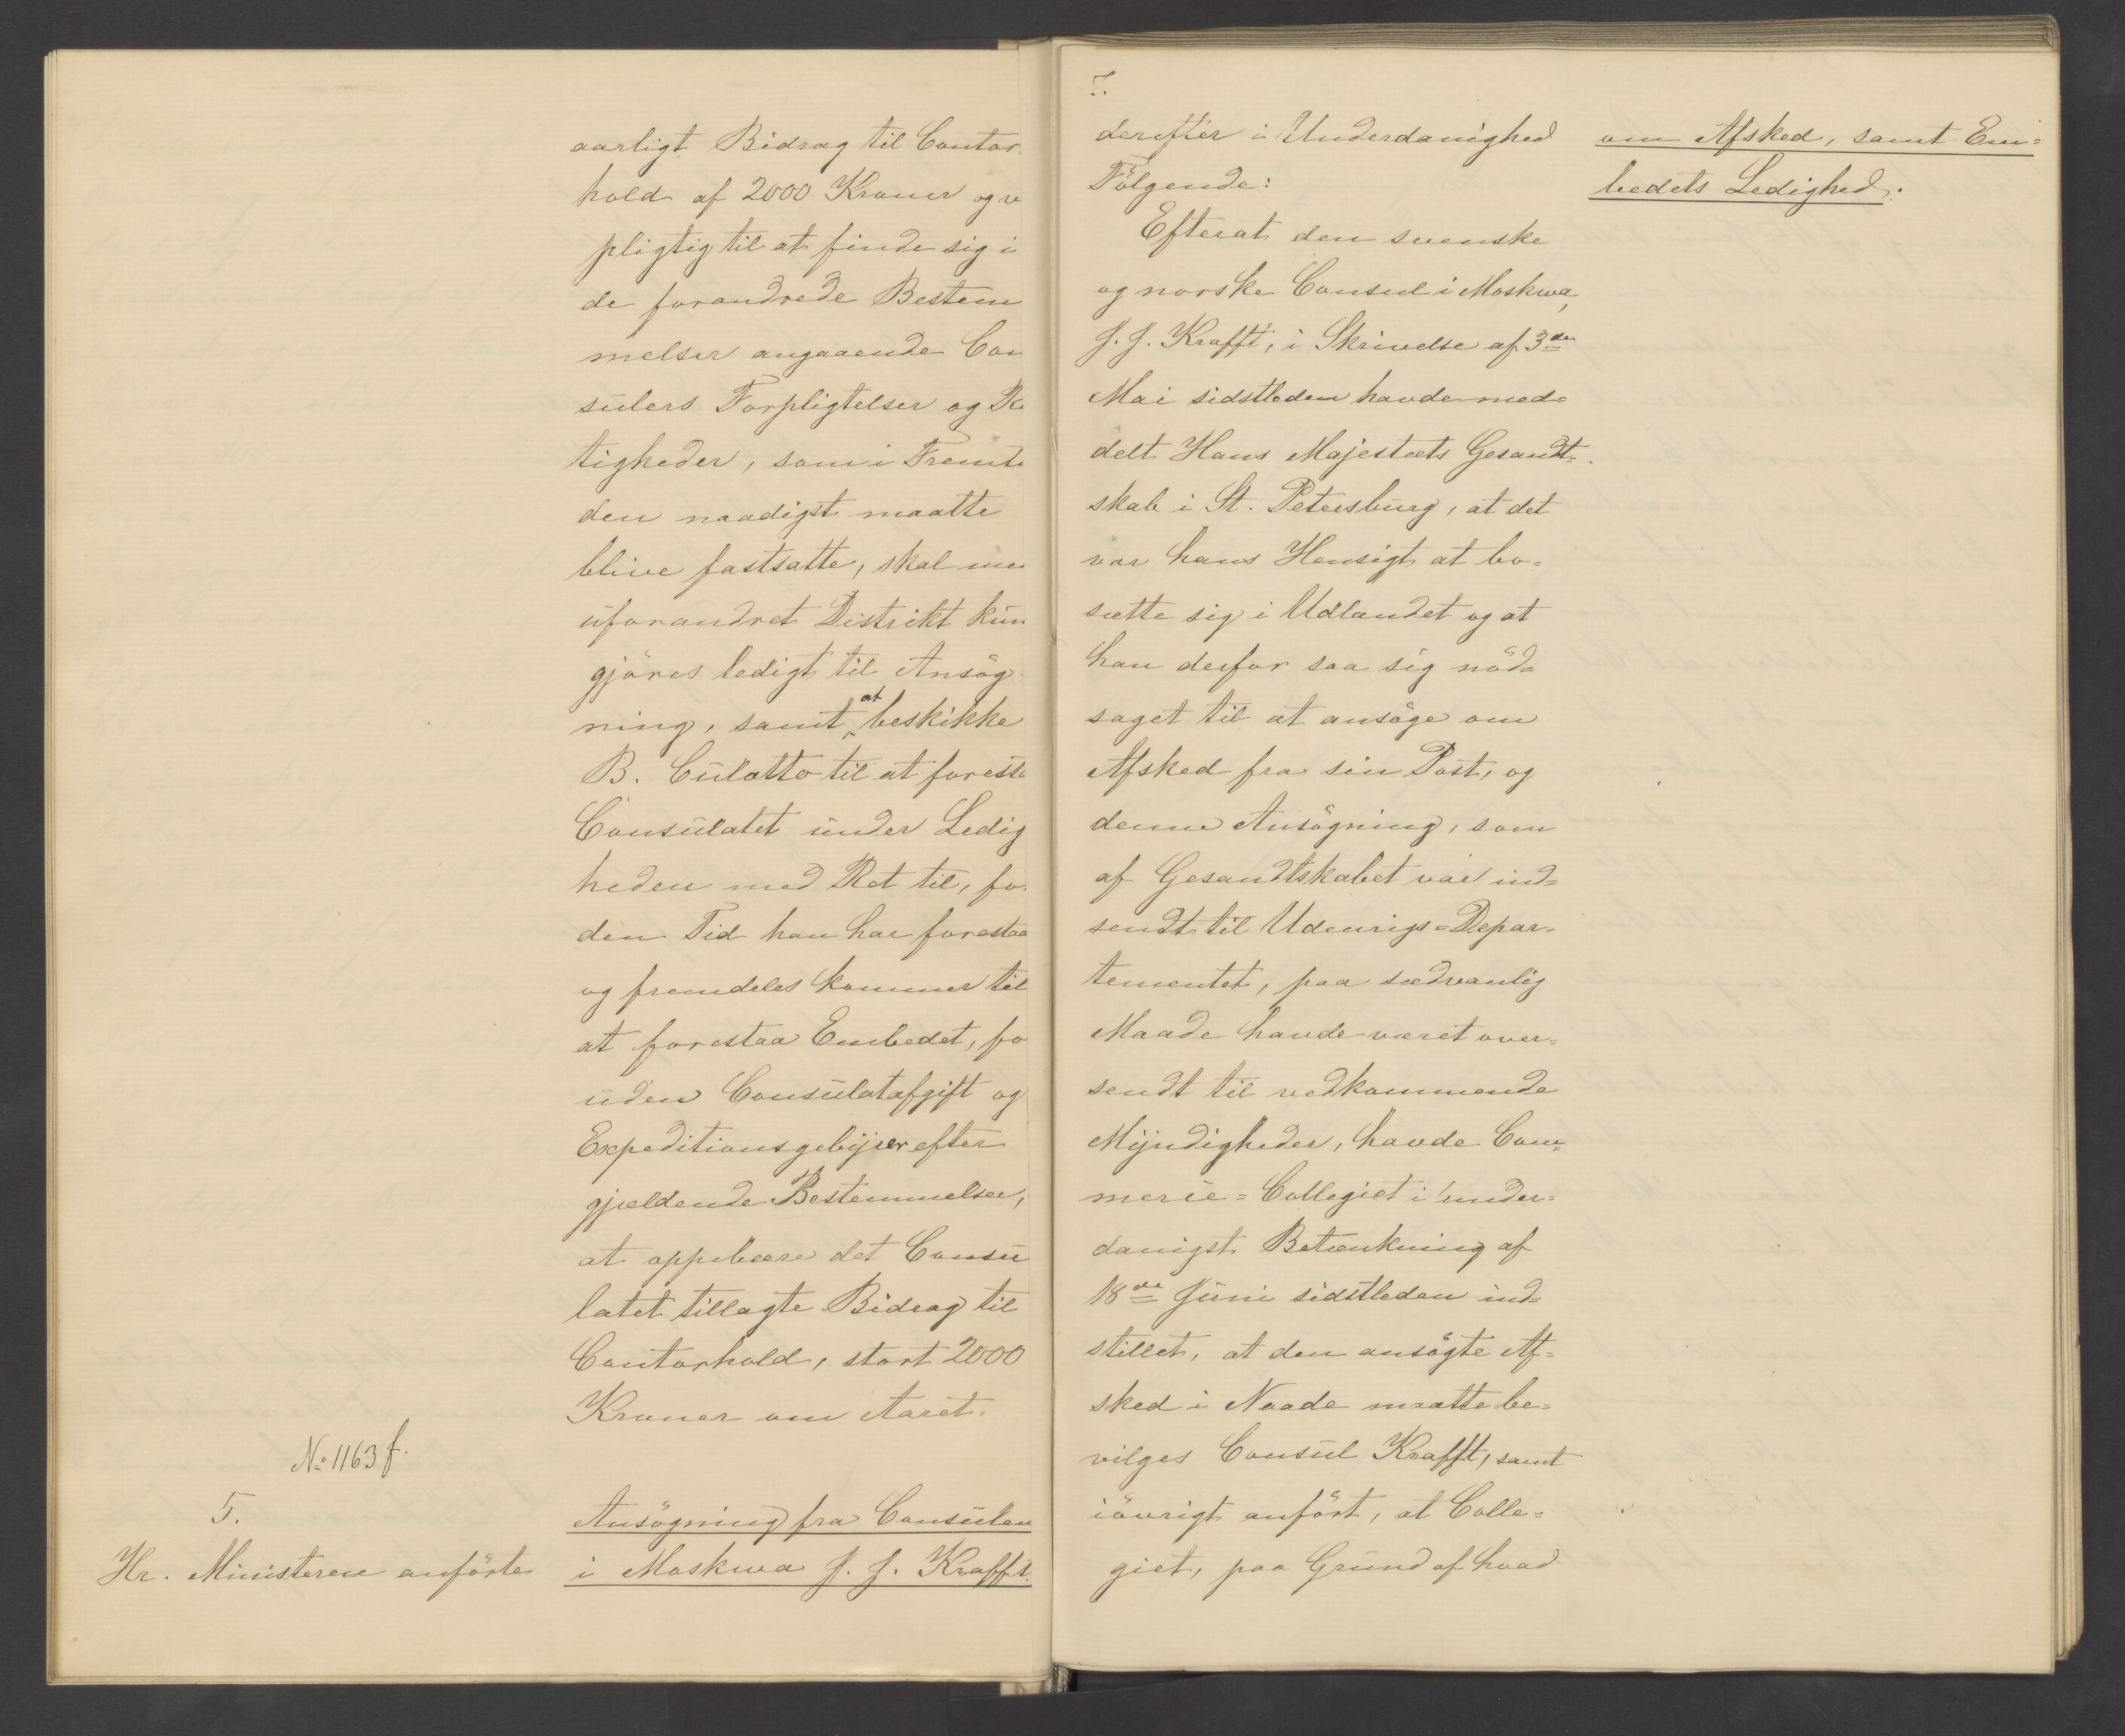 aarligt Bidrag til Contor
hold af 2000 Kroner og v
pligtig til at finde sig i
de forandrede Bestem
melser angaaende Con
sulers Forpligtelser og Re
tigheder, som i Fremti
den naadigst maatte
blive fastsatte, skal me
uforandret Distrikt kun
gjöres ledigt til Ansög
ning, samt at beskikke
B. Culatto til at foresta
Consulatet under Ledig
heden med Ret til, fo
den Tid han har forestaa
og fremdeles kommer til
at forestaa Embedet, fo
uden Consulatafgift og
Expeditionsgebyrer efter
gjældende Bestemmelser,
at oppebære det Consu
latet tillagte Bidrag til
Contorhold, stort 2000
Kroner om Aaret.
No 1163 f.
5.
Hr. Ministeren anförte
Ansögning fra Consulen
i Moskwa J. J. Krafft
7.
derefter i Underdanighed
Fölgende:
Efterat den svenske
og norske Consul i Moskwa,
J. J. Krafft, i Skrivelse af 3die
Mai sidstleden havde med=
delt Hans Majestæts Gesandt=
skab i St. Petersburg, at det
var hans Hensigt at bo=
sætte sig i Udlandet og at
han derfor saa sig nöd=
saget til at ansöge om
Afsked fra sin Post, og
denne Ansögning, som
af Gesandtskabet var ind=
sendt til Udenrigs=Depar=
tementet, paa sædvanlig
Maade havde været over=
sendt til vedkommende
Myndigheder, havde Com=
merce=Collegiet i under=
danigst Betænkning af
18de Juni sidstleden ind=
stillet, at den ansögte Af=
sked i Naade maatte be=
vilges Consul Krafft, samt
iövrigt anfört, at Colle=
giet, paa Grund af hvad
om Afsked, samt Em=
bedets Ledighed.